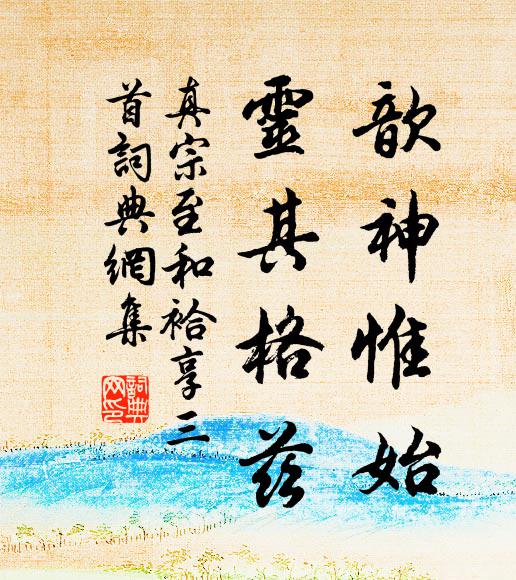 歆神惟始
靈其格茲
真宗至和祫享三
首詞典網集
詞典
网印